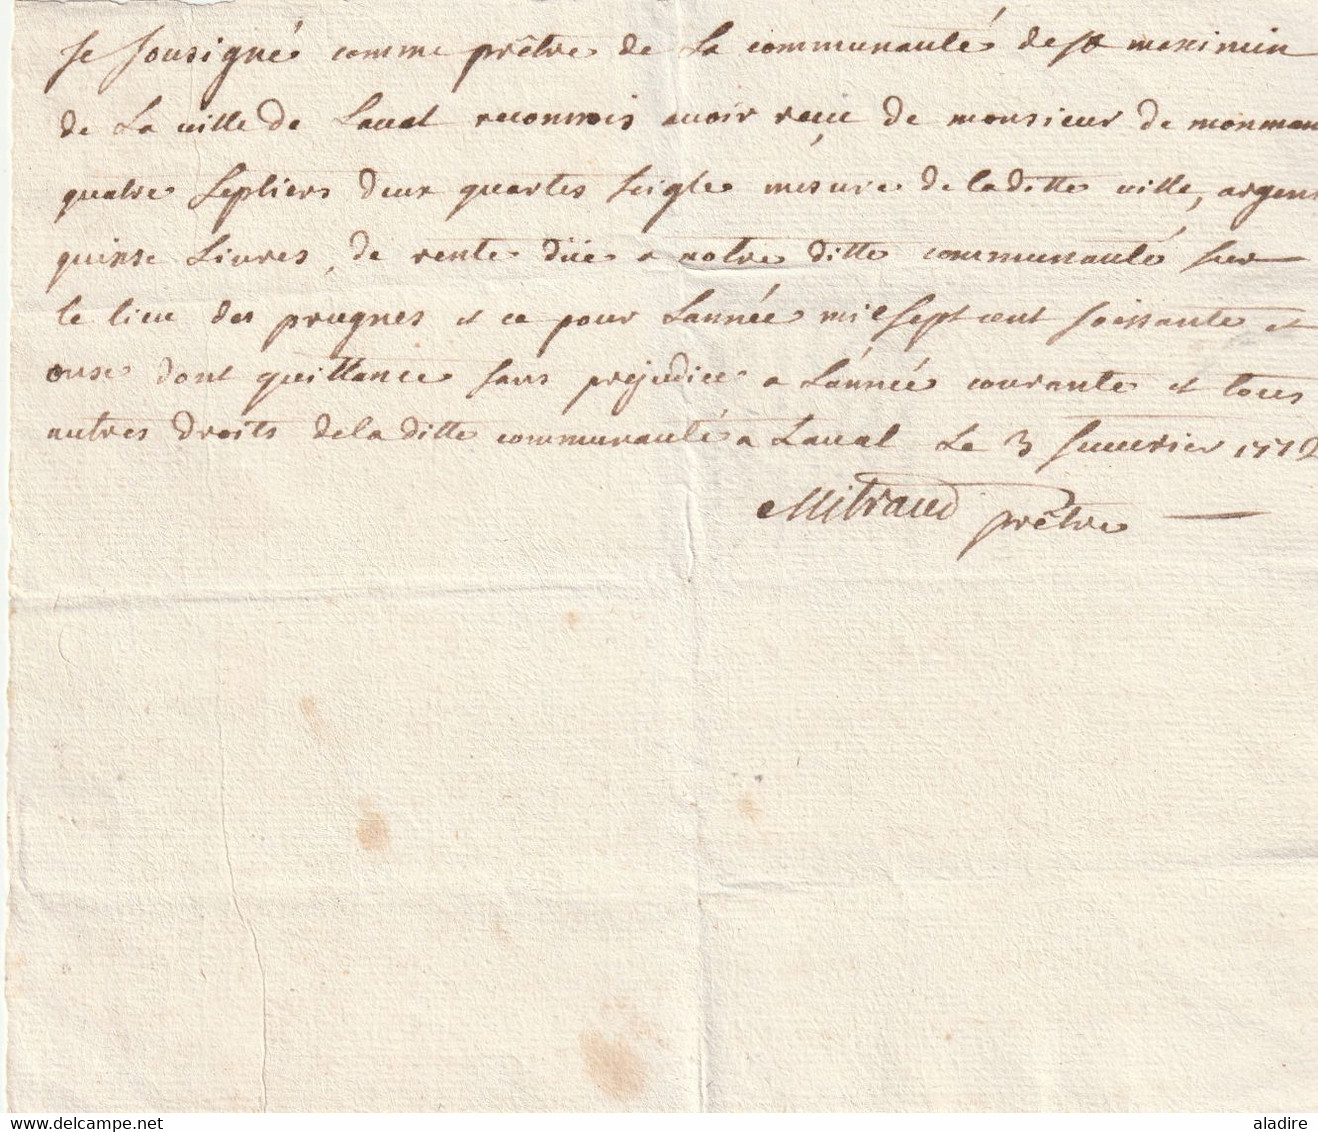 Je sousigné comme prêtre de La communauté de st maximin
de La ville de Laval reconnois avoir reçu de monsieur de
quatre septiers deux quartes seigle mesure de la ditte ville, argent
quinse Livres, de rente düe a notre ditte communauté sur
le lieu des prugnes et ce pour L'année mil sept cent soissante et
onse dont quittance sans prejudice a L'année courante et tous
autres droits de la ditte communauté a Laval Le 3 Janvrier 1772
Mitraud prêtre
aladire